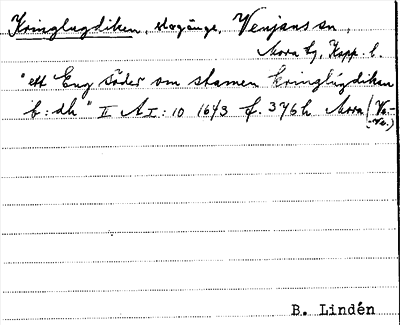 Kringlugdiken, slogänge, Venjans sn,
Mora tg, Kopp. l.
"ett Eng söder om stamen kringlugdikan
b:dh" II A I: 10 1643 f. 376 b Mora (Ve-
B. Lindén